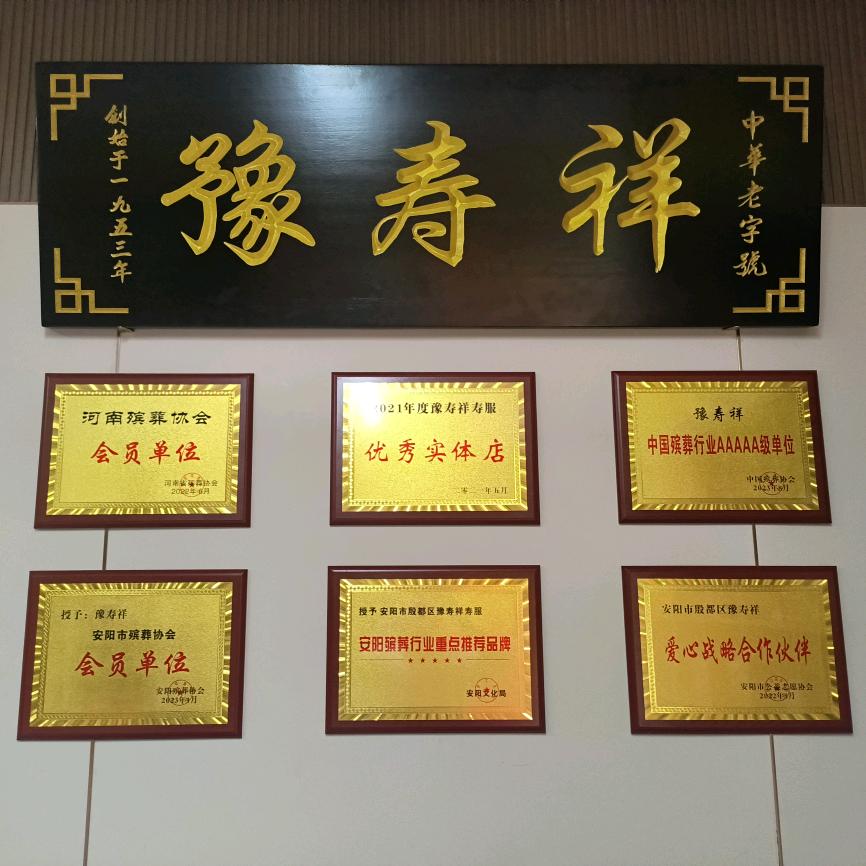 中華老字號
豫寿祥
創始于一九五三年
河南殡葬协会
会员单位
河南省殡葬协会
2022年6月
2021年度豫寿祥寿服
优秀实体店
二零二一年五月
豫寿祥
中国殡葬行业AAAAA级单位
中国殡葬协会
2023年6月
授予：豫寿祥
安阳市殡葬协会
会员单位
安阳殡葬协会
2023年4月
授予 安阳市殷都区豫寿祥寿服
安阳殡葬行业重点推荐品牌
★★★★★
安阳文化局
安阳市殷都区豫寿祥
爱心战略合作伙伴
安阳市
志愿协会